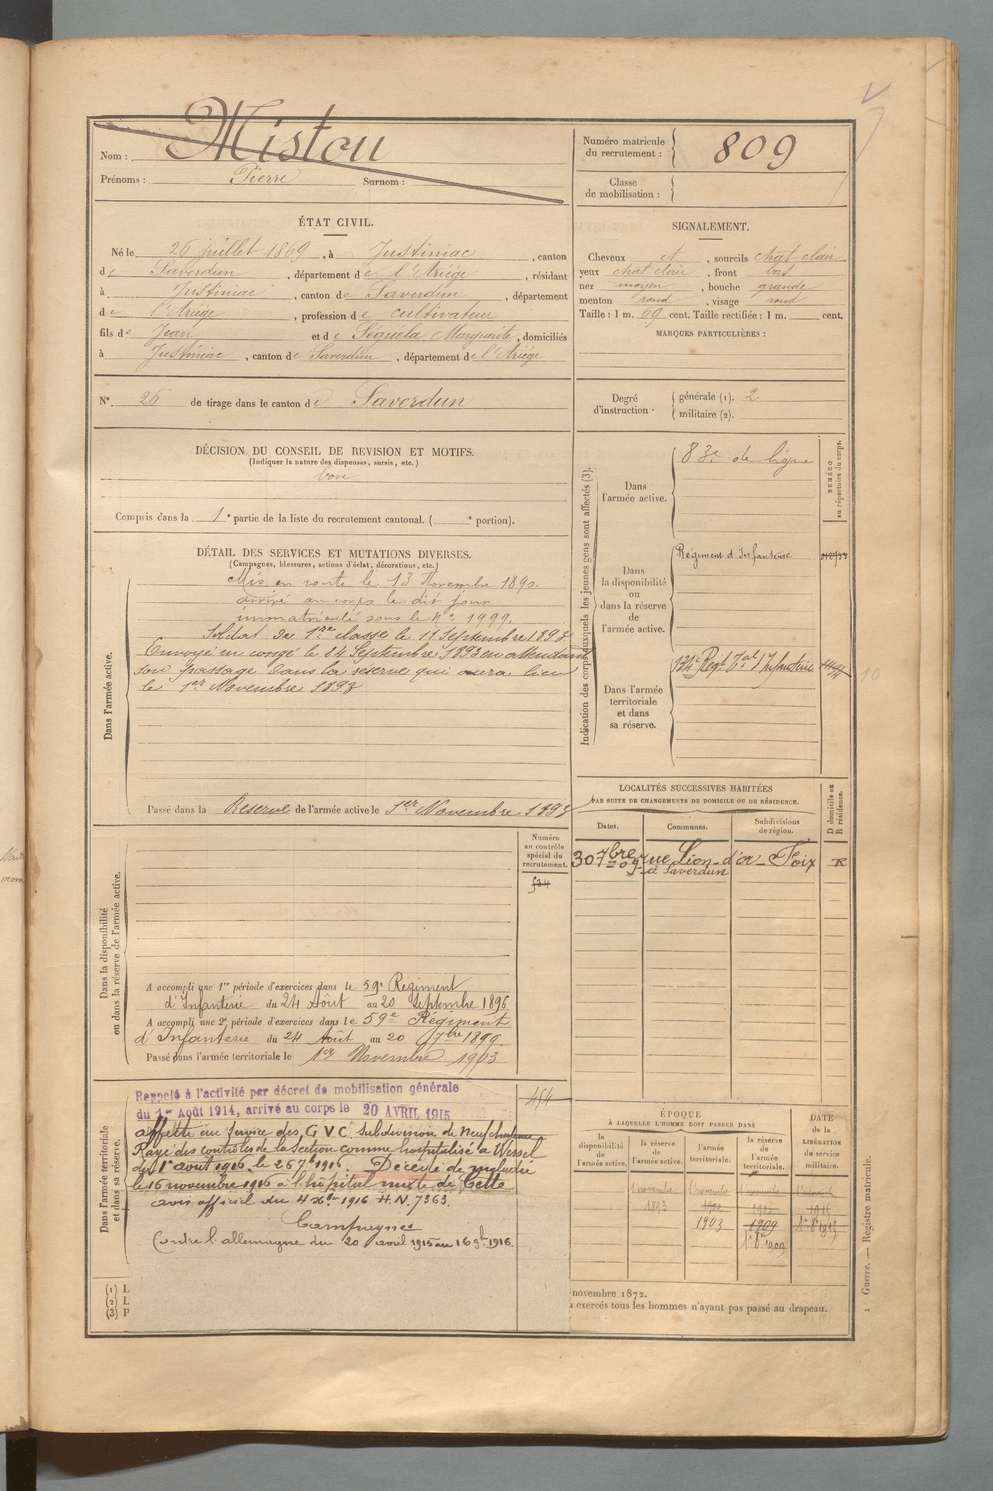 Nom : Mistou
Prénoms : Pierre Surnom :
Numéro matricule du recrutement : 809
Classe de mobilisation :
ÉTAT CIVIL.
Né le 26 juillet 1869, à Justiniac, canton
de Saverdun, département de l'Ariége, résidant
à Justiniac, canton de Saverdun, département
de l'Ariége, profession de cultivateur
fils de Jean et de Séguéla Marguerite, domiciliés
à Justiniac, canton de Saverdun, département de l'Ariége
N° 26 de tirage dans le canton de Saverdun
SIGNALEMENT.
Cheveux et, sourcils chat-clair
yeux chat clair, front bas
nez moyen, bouche grande
menton rond, visage rond
Taille : 1 m. 69 cent. Taille rectifiée : 1 m. cent.
MARQUES PARTICULIÈRES :
Degré d'instruction . générale (1). 2
militaire (2).
DÉCISION DU CONSEIL DE REVISION ET MOTIFS.
(Indiquer la nature des dispenses, sursis, etc.)
bon
Compris dans la 1e partie de la liste du recrutement cantonal. ( e portion).
DÉTAIL DES SERVICES ET MUTATIONS DIVERSES.
(Campagnes, blessures, actions d'éclat, décorations, etc.)
Dans l'armée active.
Mis en route le 13 Novembre 1890.
arrivé au corps le dit jour
immatriculé sous le N° 1999.
Soldat de 1re classe le 17 Septembre 1892
Envoyé en congé le 24 Septembre 1893 en attendant
son passage dans la réserve qui aura lieu
le 1er Novembre 1893
Passé dans la Réserve de l'armée active le 1er Novembre 1893
Indication des corps auxquels les jeunes gens sont affectés (3).
NUMÉRO au répertoire du corps.
Dans l'armée active.
83e de ligne
Dans la disponibilité ou dans la réserve de l'armée active.
Régiment d'Infanterie
Dans l'armée territoriale et dans sa réserve.
134e Regt Tal d'Infanterie
LOCALITÉS SUCCESSIVES HABITÉES
PAR SUITE DE CHANGEMENTS DE DOMICILE OU DE RÉSIDENCE.
D domicile ou R résidence.
Dates. Communes. Subdivisions de région.
30 7bre 09 rue Lion-d'or- Foix R
à Saverdun
Numéro au contrôle spécial du recrutement.
Dans la disponibilité ou dans la réserve de l'armée active.
A accompli une 1re période d'exercices dans le 59e Régiment
d'Infanterie du 24 Août au 20 Septembre 1896
A accompli une 2e période d'exercices dans le 59e Régiment
d'Infanterie du 24 Août au 20 7bre 1899.
Passé dans l'armée territoriale le 1er Novembre 1903
454
Dans l'armée territoriale et dans sa réserve.
Rappelé à l'activité par décret de mobilisation générale
du 1er Août 1914, arrivé au corps le 20 AVRIL 1915
affecté au Service des G V C subdivision de Neufchateau
Rayé des contrôles de la Section comme hospitalisé à Wessel
du 1er août 1916, le 26 7bre 1916. Décédé de maladie
le 16 novembre 1916 à l'hôpital mixte de Cette
avis officiel du 4 Xbre 1916 H.N. 7363.
Campagnes
Contre l'allemagne du 20 avril 1915 au 16 9bre 1916.
ÉPOQUE
À LAQUELLE L'HOMME DOIT PASSER DANS
la disponibilité de l'armée active.
la réserve de l'armée active.
l'armée territoriale.
la réserve de l'armée territoriale.
DATE de la LIBÉRATION du service militaire.
1 novembre 1893
1 novembre 1903
1909
1er 8bre 1909
(1) L
(2) L
(3) P
novembre 1872.
à exercés tous les hommes n'ayant pas passé au drapeau.
1 Guerre. — Registre matricule.